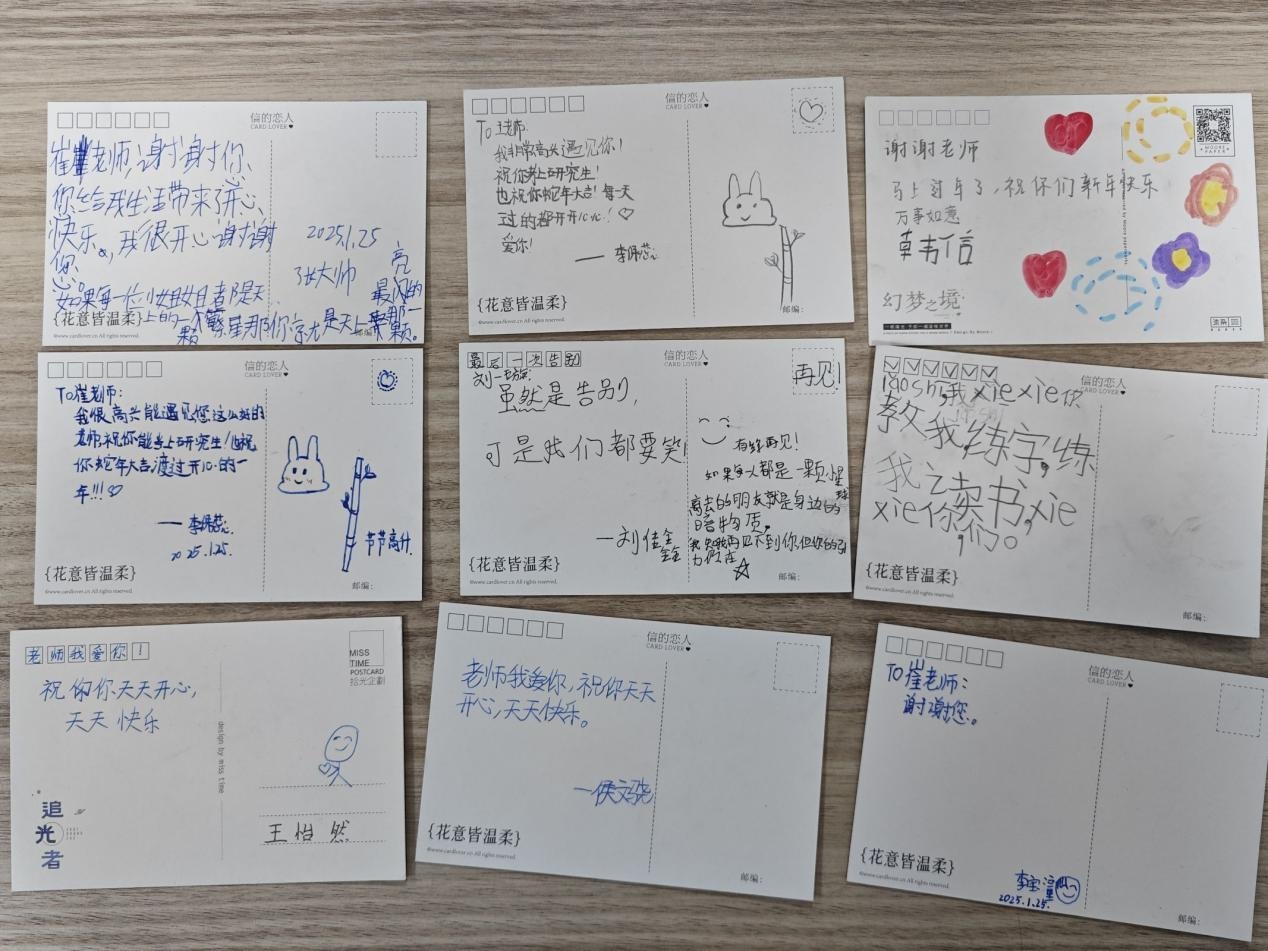 信的恋人
CARD LOVER
崔老师,谢谢你、
你给我生活带来了开心、
快乐。我很开心谢谢
您。
2025.1.25
张大帅
如果每一位小姐姐都是天
上的一个繁星那你京尤是天上最闪的
亮
那一
颗
颗。
{花意皆温柔}
©www.cardlover.cn All rights reserved.
邮编:
信的恋人
CARD LOVER
To 王老师.
我非常高兴遇见你!
祝你考上研究生!
也祝你蛇年大吉!每一天
过的都开开心心!♡
爱你!
——李佩蕊
{花意皆温柔}
邮编:
MOORE
PAPER
谢谢老师
马上过年了,祝你们新年快乐
万事如意
草韦信
幻梦之境
信的恋人
CARD LOVER
To崔老师:
我很高兴能遇见您这么好的
老师,祝你能考上研究生!也祝
你蛇年大吉渡过开心的一
年!!!♡
——李佩蕊
2025.1.25.
节节高升
{花意皆温柔}
©www.cardlover.cn All rights reserved.
邮编:
最后一次告别
信的恋人
CARD LOVER
再见!
虽然是告别,
可是我们都要笑!
有缘再见!
如果每人都是一颗小星
球
离去的朋友就是身边的
暗物质。
我知我再见不到你,但你的引
力仍在
☆
—刘佳鑫
{花意皆温柔}
©www.cardlover.cn All rights reserved.
邮编:
信的恋人
CARD LOVER
lao shi我xie xie你
教我,练字,练
我之卖书,xie
xie你,们。
{花意皆温柔}
©www.cardlover.cn All rights reserved.
邮编:
老师我爱你!
MISS
TIME
POSTCARD
拾光企劃
祝你你天天开心,
天天快乐
design by miss time
追
光
者
王怡然
信的恋人
CARD LOVER
老师我爱你,祝你天天
开心,天天快乐。
—侯文骁
{花意皆温柔}
©www.cardlover.cn All rights reserved.
邮编:
信的恋人
CARD LOVER
To崔老师:
谢谢您。
{花意皆温柔}
©www.cardlover.cn All rights reserved.
2025.1.25.
邮编: